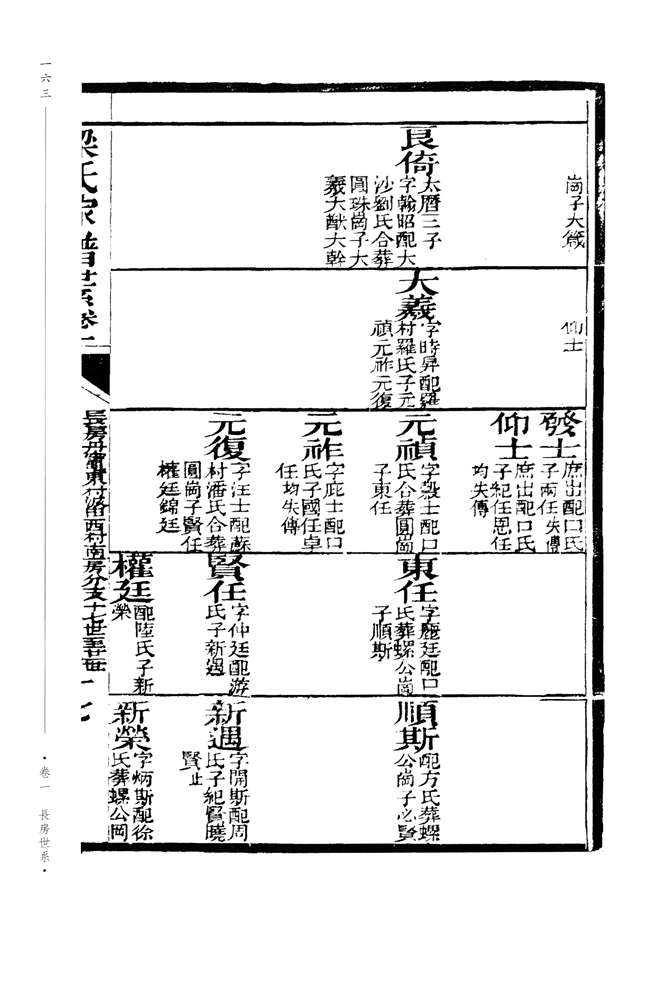 崗子大箴
良倚
太曆三子
字翰昭配大
沙劉氏合葬
圓珠崗子大
羲大猷大幹
仰士
大羲
字時昇配羅
村羅氏子元
禎元祚元復
發士
庶出配口氏
子兩任失傳
仰士
庶出配口氏
子紀任恩任
均失傳
元禎
字毅士配口
氏合葬圓崗
子東任
元祚
字庇士配口
氏子國任卓
任均失傳
元復
字汪士配蘇
村潘氏合葬
圓崗子賢任
權廷錦廷
東任
字麗廷配口
氏葬螺公崗
子順斯
賢任
字仲廷配游
氏子新遇
權廷
配陸氏子新
榮
順斯
配方氏葬螺
公崗子必賢
新遇
字開斯配周
氏子紀賢曉
賢止
新榮
字炳斯配徐
氏葬螺公岡
梁氏家譜世系卷一
一六三
·卷一 長房世系·